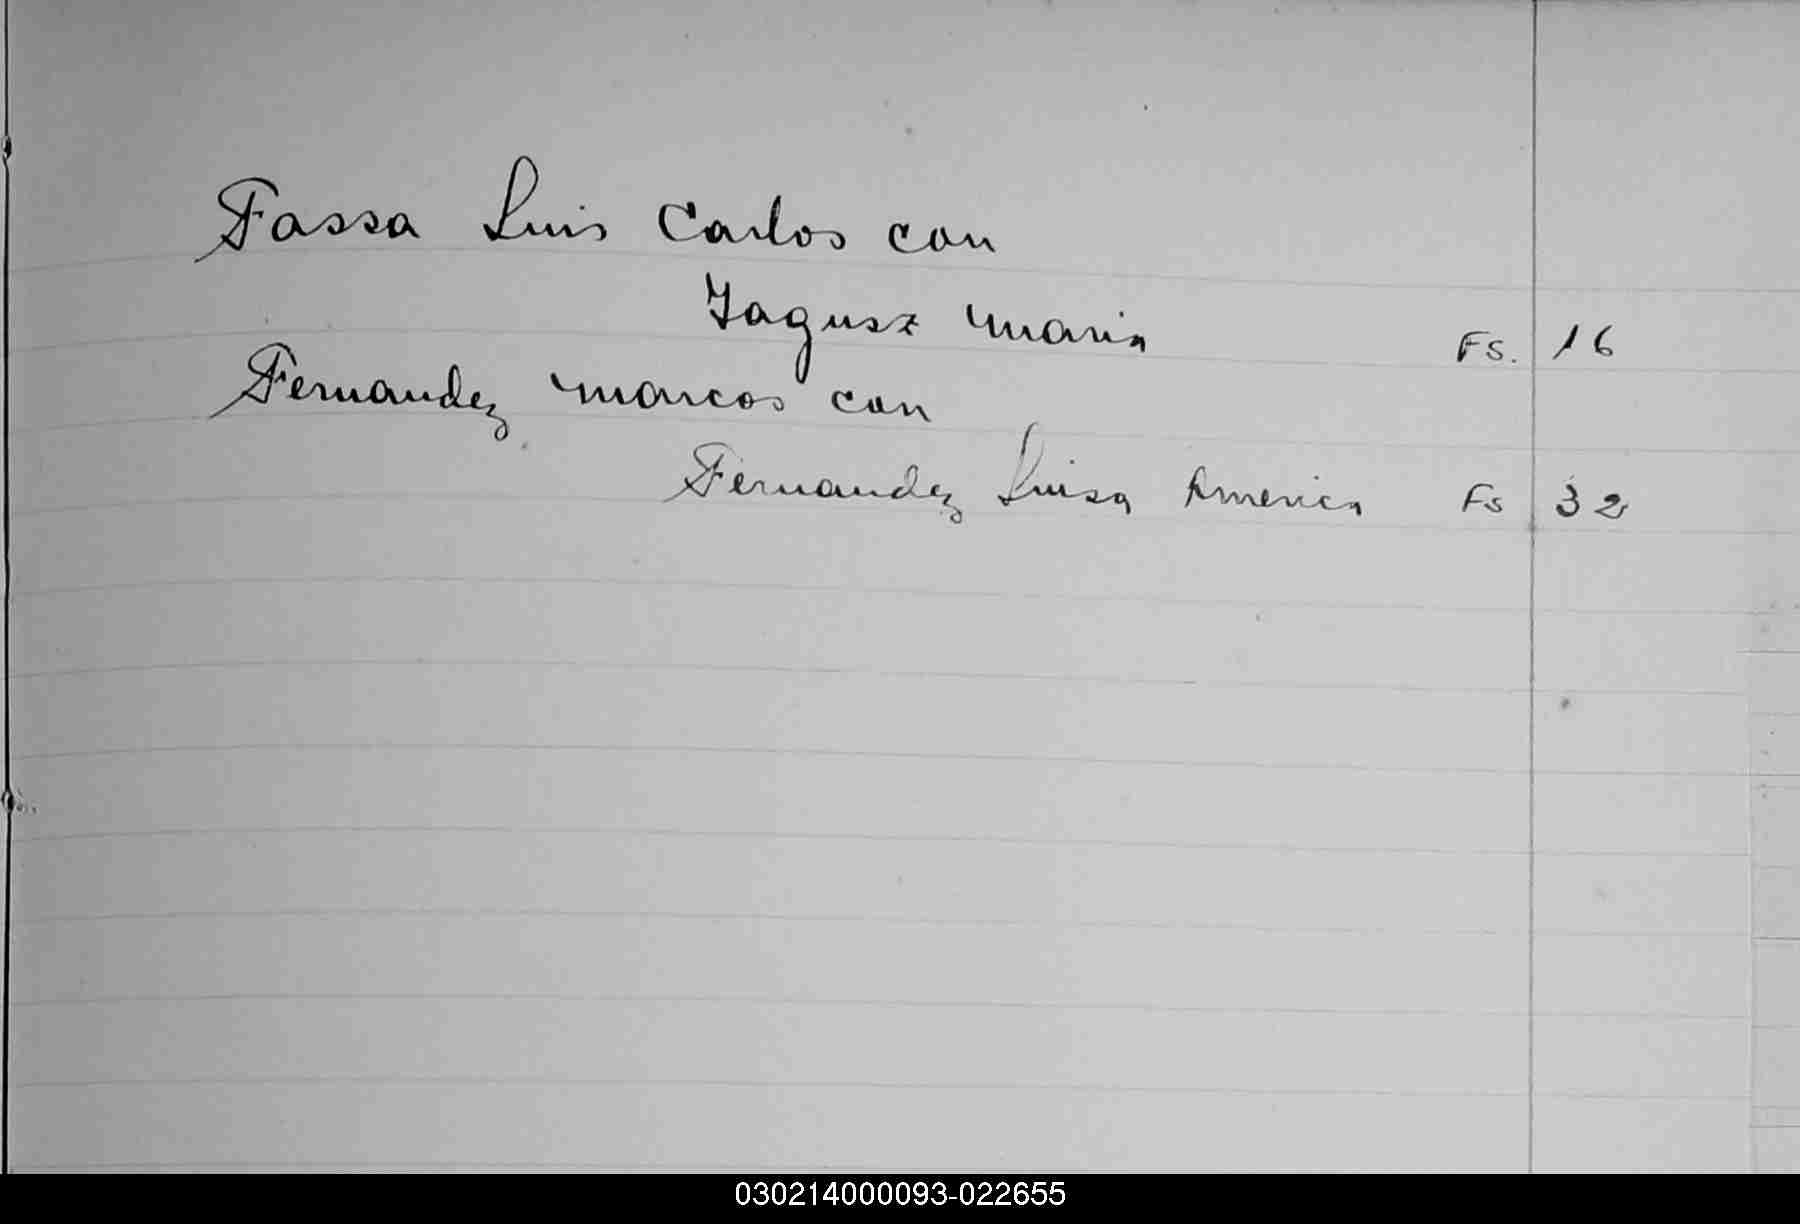 Fassa Luis Carlos con
Jagusz Maria Fs. 16
Fernandez Marcos con
Fernandez Luisa America Fs 32
030214000093-022655